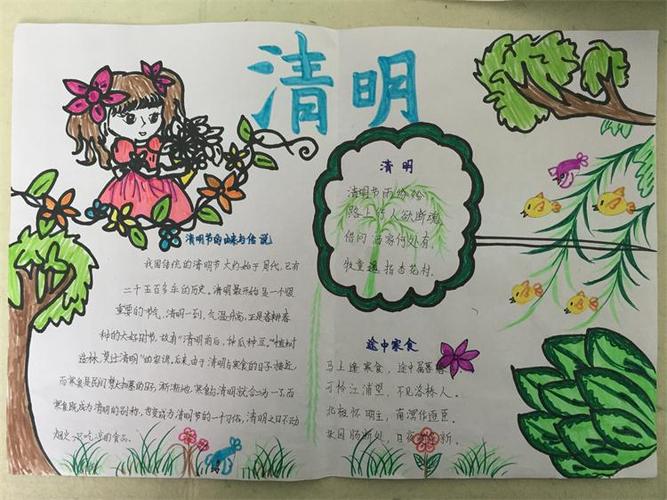 清明
清明节的由来与传说
我国传统的清明节大约始于周代,已有
二十五百多年的历史。清明最开始是一个很
重要的节气,清明一到,气温升高,正是春耕春
种的大好时节,故有"清明前后,种瓜种豆。""植树
造林,莫过清明"的农谚。后来,由于清明与寒食的日子接近,
而寒食是民间禁火扫墓的日子,渐渐地,寒食与清明就合二为一了,而
寒食既成为清明的别称,也变成为清明节的一个习俗,清明之日不动
烟火,只吃凉的食品。
清明
清明节雨纷纷
路上行人欲断魂
借问酒家何处有
牧童遥指杏花村
途中寒食
马上逢寒食,途中属暮春
可怜江浦望,不见洛桥人。
北极怀明主,南溟作逐臣。
故园肠断处,日夜柳条新。